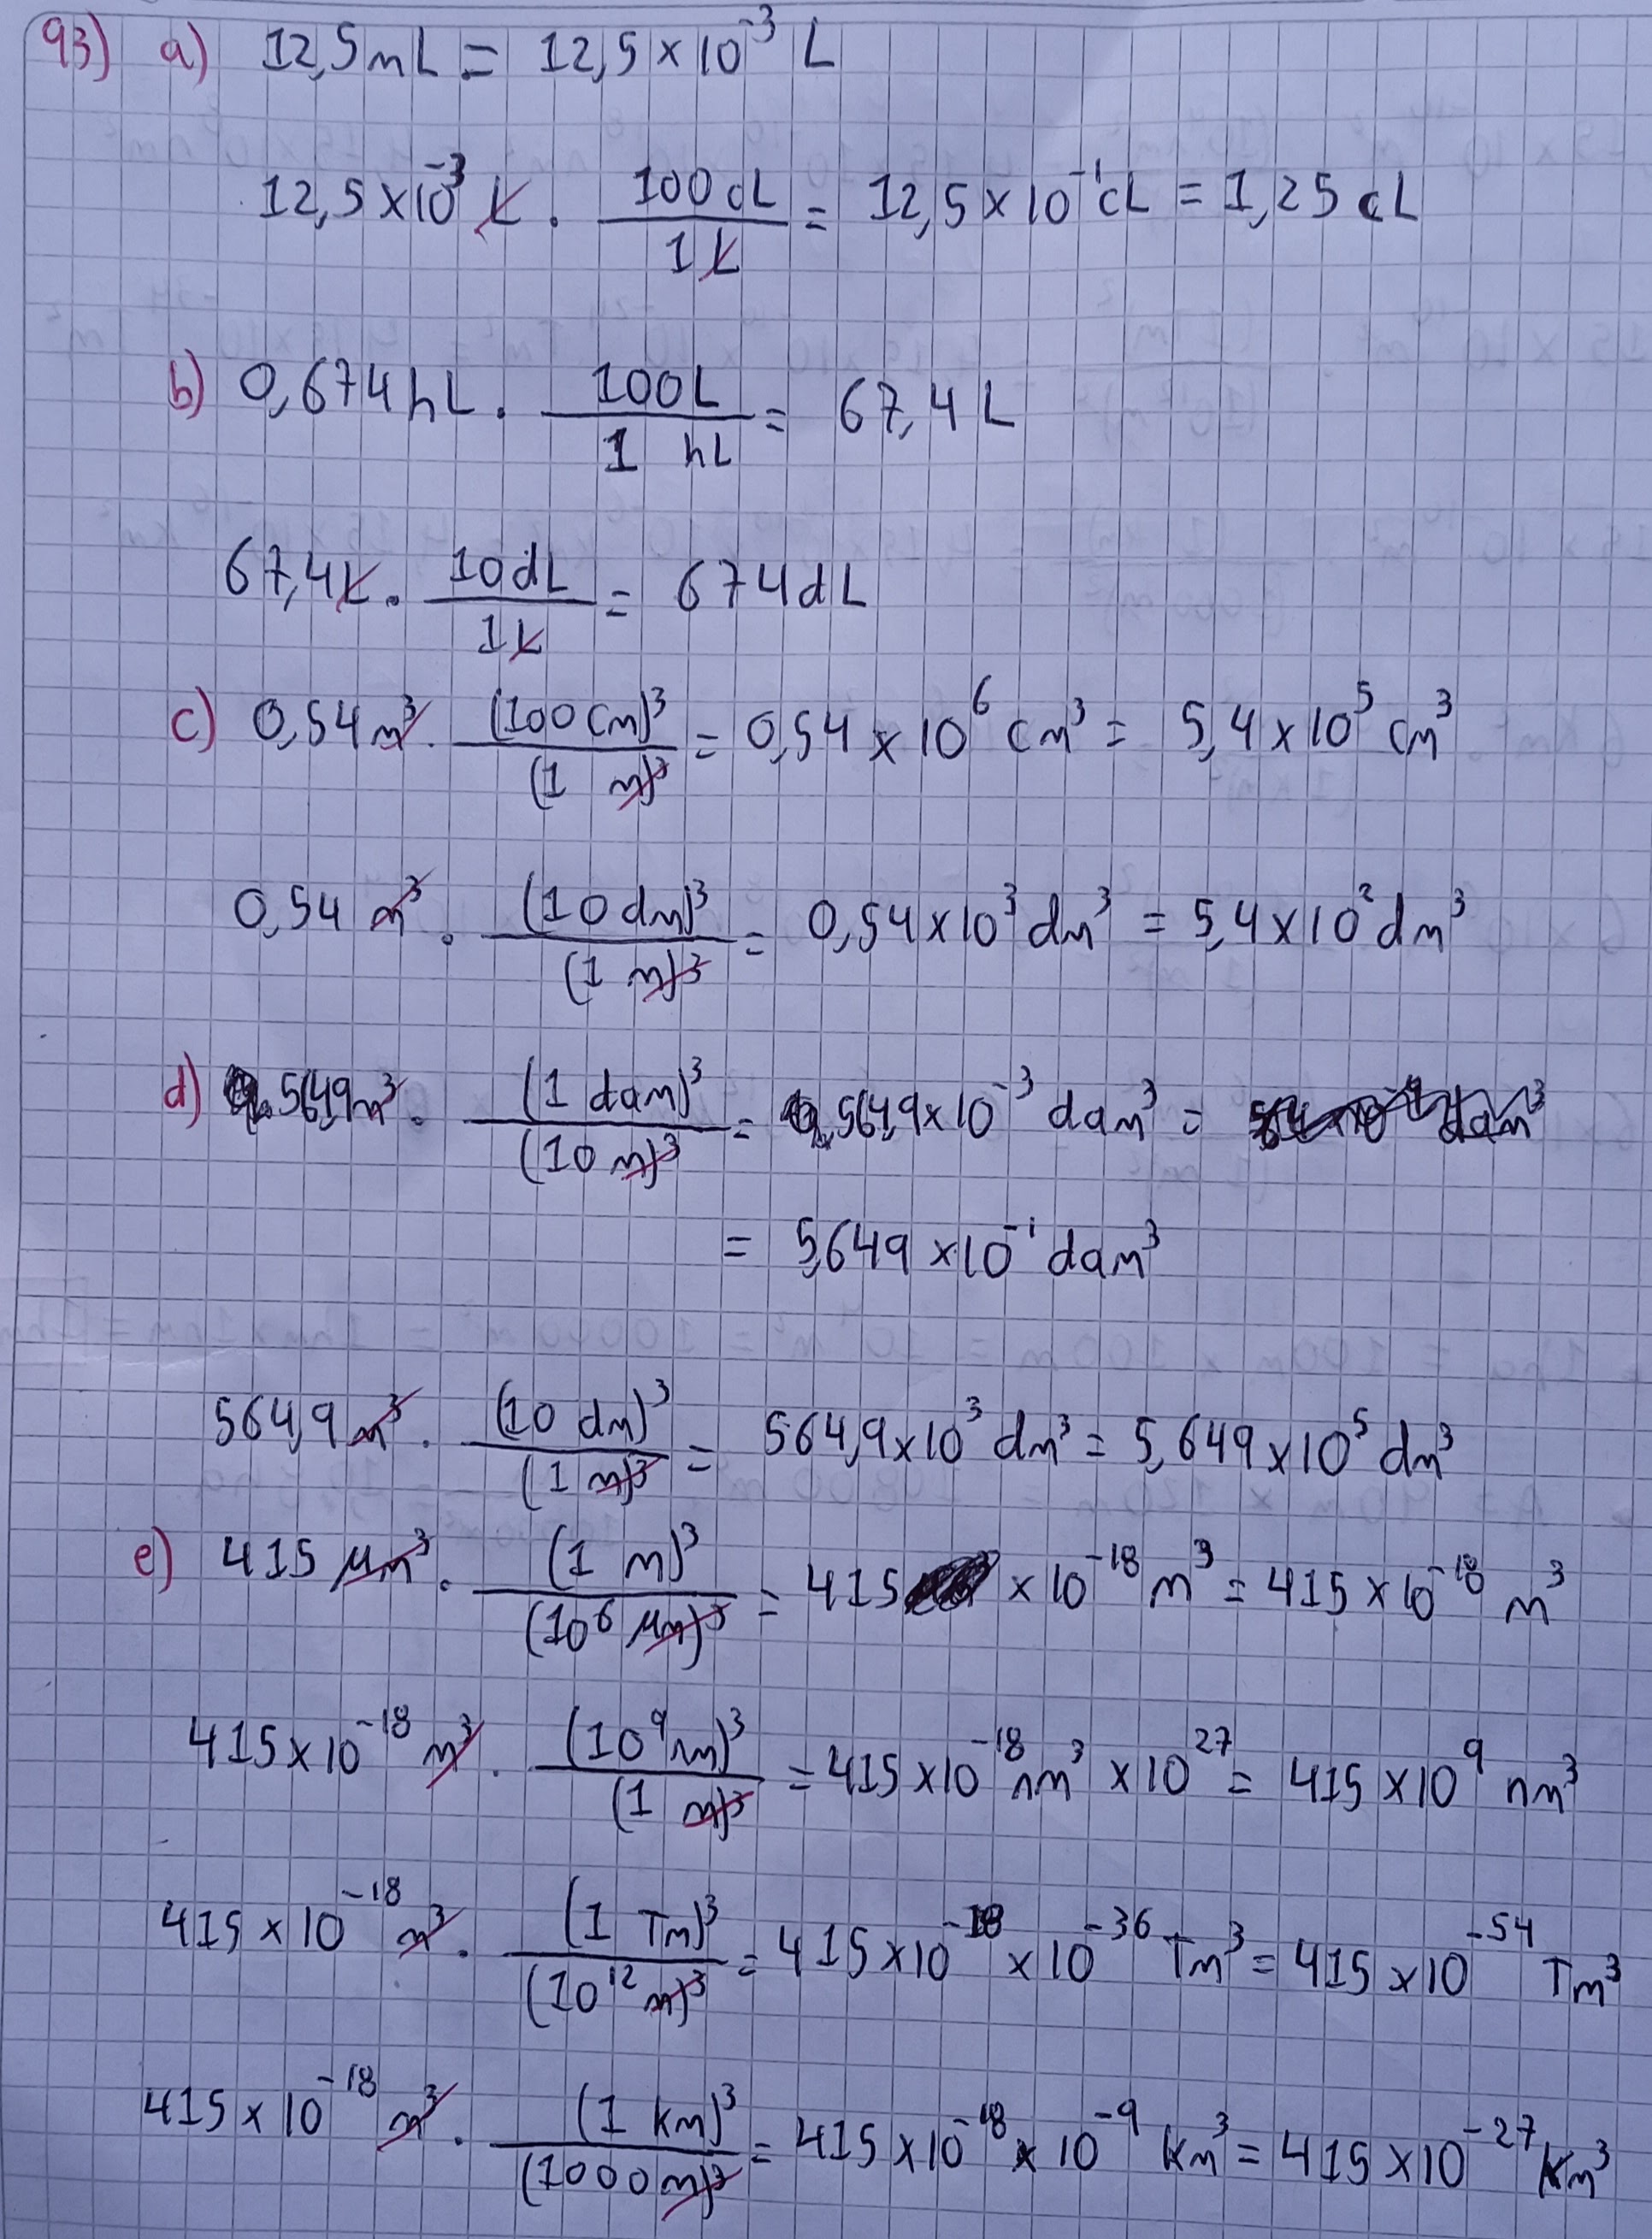 93) a) 12,5 mL = 12,5 × 10⁻³ L
12,5 × 10⁻³ L . 100 cL / 1 L = 12,5 × 10⁻¹ cL = 1,25 cL
b) 0,674 hL . 100 L / 1 hL = 67,4 L
67,4 L . 10 dL / 1 L = 674 dL
c) 0,54 m³ . (100 cm)³ / (1 m)³ = 0,54 × 10⁶ cm³ = 5,4 × 10⁵ cm³
0,54 m³ . (10 dm)³ / (1 m)³ = 0,54 × 10³ dm³ = 5,4 × 10² dm³
d) 564,9 m³ . (1 dam)³ / (10 m)³ = 564,9 × 10⁻³ dam³ =
= 5,649 × 10⁻¹ dam³
564,9 m³ . (10 dm)³ / (1 m)³ = 564,9 × 10³ dm³ = 5,649 × 10⁵ dm³
e) 415 μm³ . (1 m)³ / (10⁶ μm)³ = 415 × 10⁻¹⁸ m³ = 415 × 10⁻¹⁸ m³
415 × 10⁻¹⁸ m³ . (10⁹ nm)³ / (1 m)³ = 415 × 10⁻¹⁸ nm³ × 10²⁷ = 415 × 10⁹ nm³
415 × 10⁻¹⁸ m³ . (1 Tm)³ / (10¹² m)³ = 415 × 10⁻¹⁸ × 10⁻³⁶ Tm³ = 415 × 10⁻⁵⁴ Tm³
415 × 10⁻¹⁸ m³ . (1 km)³ / (1000 m)³ = 415 × 10⁻¹⁸ × 10⁻⁹ km³ = 415 × 10⁻²⁷ km³